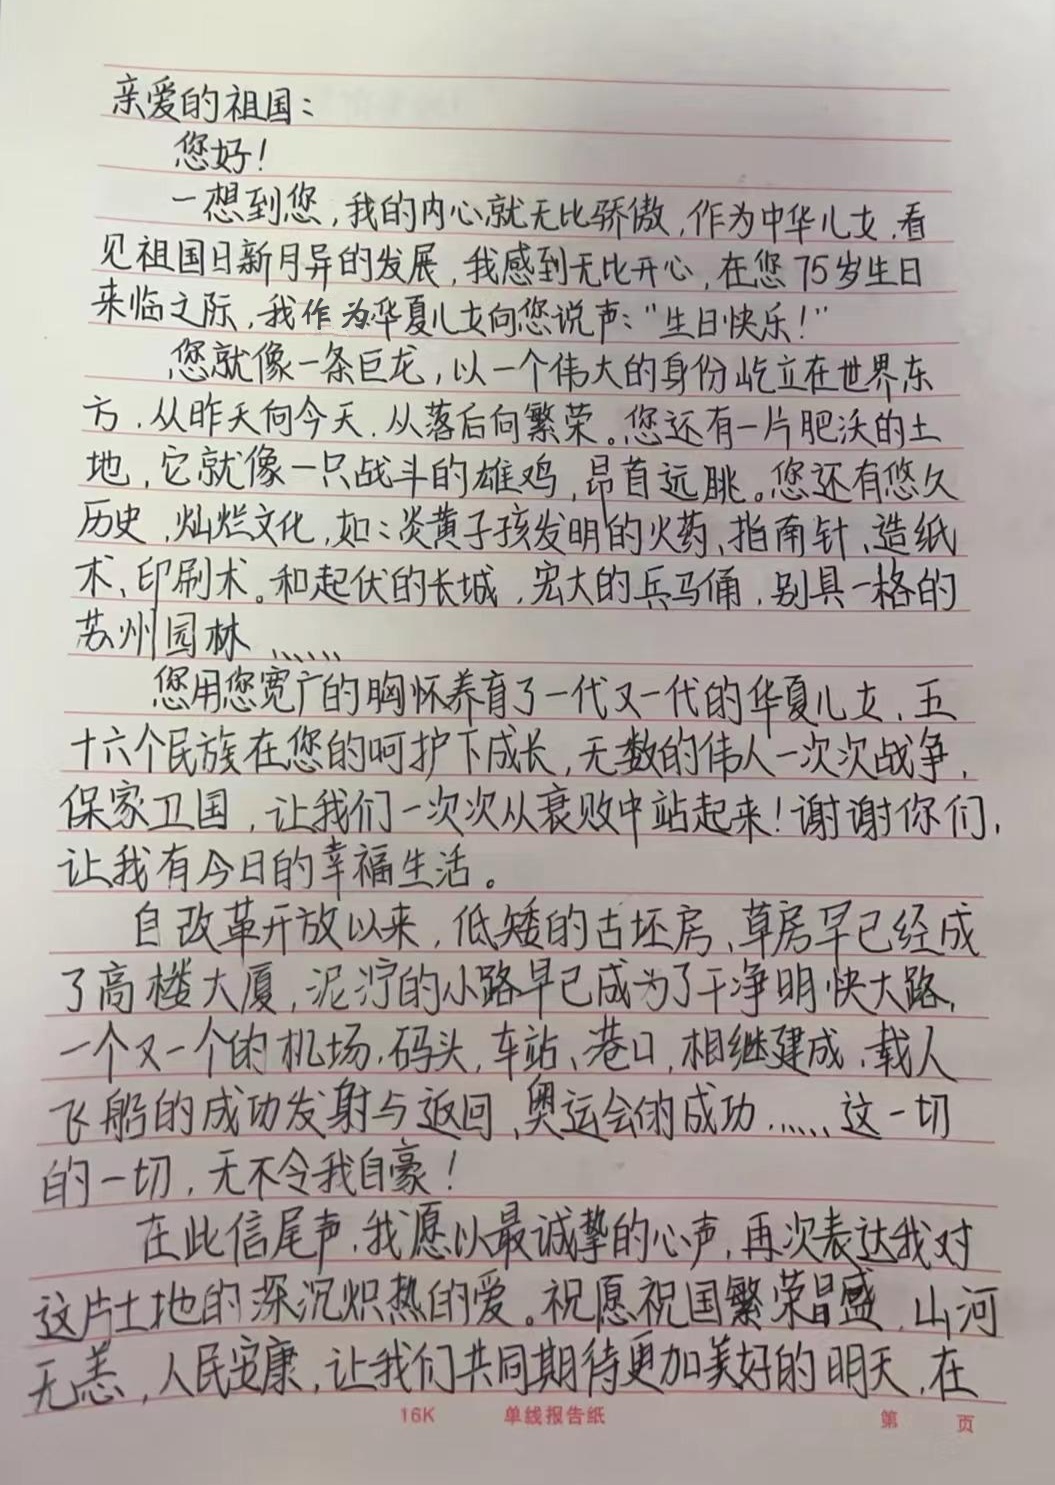 亲爱的祖国：
您好！
一想到您，我的内心就无比骄傲，作为中华儿女，看
见祖国日新月异的发展，我感到无比开心，在您75岁生日
来临之际，我作为华夏儿女向您说声：“生日快乐！”
您就像一条巨龙，以一个伟大的身份屹立在世界东
方，从昨天向今天，从落后向繁荣。您还有一片肥沃的土
地，它就像一只战斗的雄鸡，昂首远眺。您还有悠久
历史，灿烂文化，如：炎黄子孩发明的火药、指南针、造纸
术、印刷术。和起伏的长城，宏大的兵马俑，别具一格的
苏州园林……
您用您宽广的胸怀养育了一代又一代的华夏儿女，五
十六个民族在您的呵护下成长，无数的伟人一次次战争，
保家卫国，让我们一次次从衰败中站起来！谢谢你们，
让我有今日的幸福生活。
自改革开放以来，低矮的古坯房、草房早已经成
了高楼大厦，泥泞的小路早已成为了干净明快大路，
一个又一个的机场，码头，车站、巷口，相继建成，载人
飞船的成功发射与返回，奥运会的成功……这一切
的一切，无不令我自豪！
在此信尾声，我愿以最诚挚的心声，再次表达我对
这片土地的深沉炽热的爱。祝愿祝国繁荣昌盛，山河
无恙，人民安康，让我们共同期待更加美好的明天，在
16K 单线报告纸 第 页